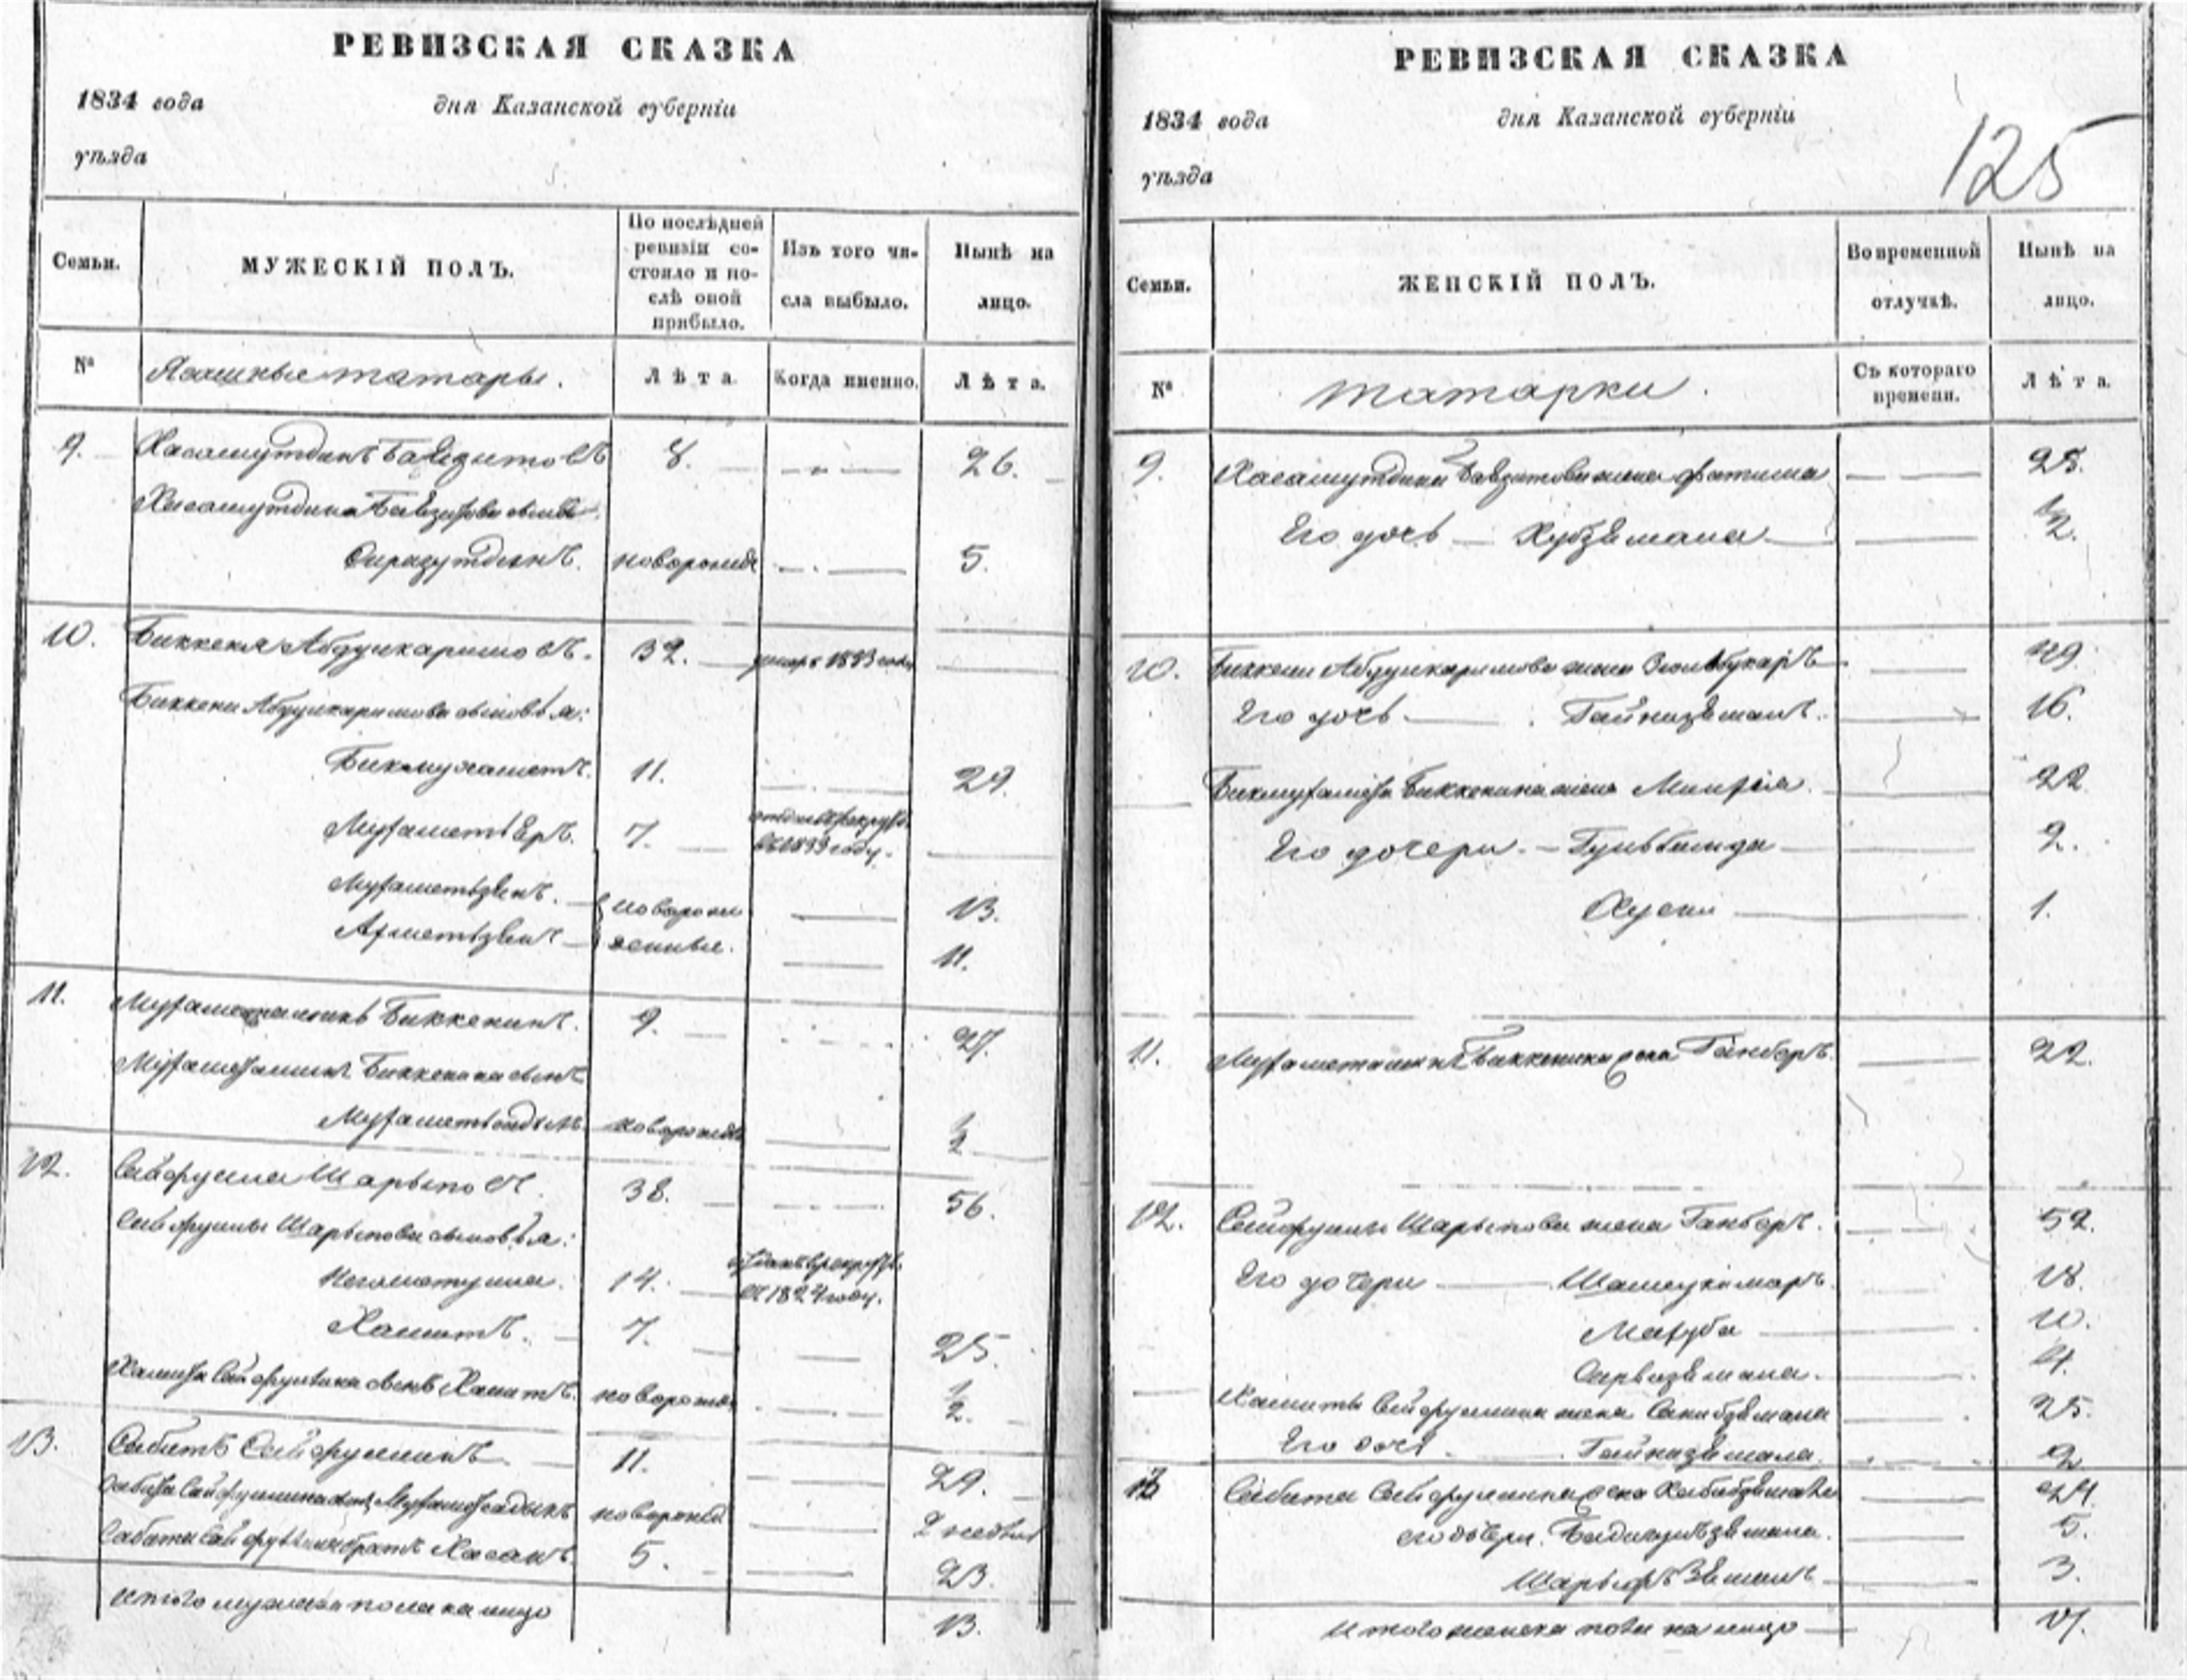 РЕВИЗСКАЯ СКАЗКА
1834 года дня Казанской губерніи
уѣзда
Семьи.
МУЖЕСКІЙ ПОЛЪ.
По послѣдней ревизіи состояло и послѣ оной прибыло.
Изъ того числа выбыло.
Нынѣ на лицо.
№
Ясашные татары.
Лѣта.
Когда именно.
Лѣта.
9. Хасамутдинъ Бавзитовъ 8. 26.
Хисамутдина Бавзитова сынъ
Сиразутдинъ. новорожд 5.
10. Биккеня Абдулкаримовъ. 32. умеръ 1833 году
Биккени Абдулкаримова сыновья:
Бикмухаметъ. 11. 29.
Мухаметьяръ. 7. отданъ в рекруты
въ 1833 году.
Мухаметзянъ. новорож 13.
Ахметзянъ денные. 11.
11. Мухаметшинъ Биккенинъ. 9. 27.
Биккенина сынъ
Мухаметсадыкъ новорожд 1/2
12. Сейфулла Шарыповъ. 38. 56.
Сейфуллы Шарыпова сыновья:
Негаметулла. 14. отданъ в рекруты
въ 1824 году.
Хамитъ. 7. 25.
Хамита Сейфулина сынъ новорожд 1/2.
13. Сабитъ Сейфуллинъ 11. 29.
Сабита Сейфуллина сынъ Мухаметсадыкъ новорожд 2 недѣли
Сабита Сейфуллина братъ Хасанъ. 5. 23.
Итого мужеска пола на лицо 13.
РЕВИЗСКАЯ СКАЗКА
1834 года дня Казанской губерніи
уѣзда
125
Семьи.
ЖЕНСКІЙ ПОЛЪ.
Во временной отлучкѣ.
Нынѣ на лицо.
№
татарки.
Съ котораго времени.
Лѣта.
9. Хасамутдина Бавзитова жена Фатима 25.
Его дочь Хубзямала 1/2.
10. Биккени Абдулкаримова жена 49.
Его дочь Гайнизямалъ. 16.
Бикмухамета Биккенина жена 22
Его дочери 2.
Хусни 1.
11. Биккенина жена Ганбаръ. 22.
12. Сейфуллы Шарыпова жена Ганбаръ. 52.
Его дочери Шамсукамаръ. 18.
Махуба 10.
Сарвизямала. 4.
Хамита Сейфуллина жена 25.
Его дочь Гайнизямала. 2
13 Сабита Сейфуллина жена Хабибзямала 24.
его дочери. 5.
Шарыфъ Зямалъ 3.
Итого женска пола на лицо 17.